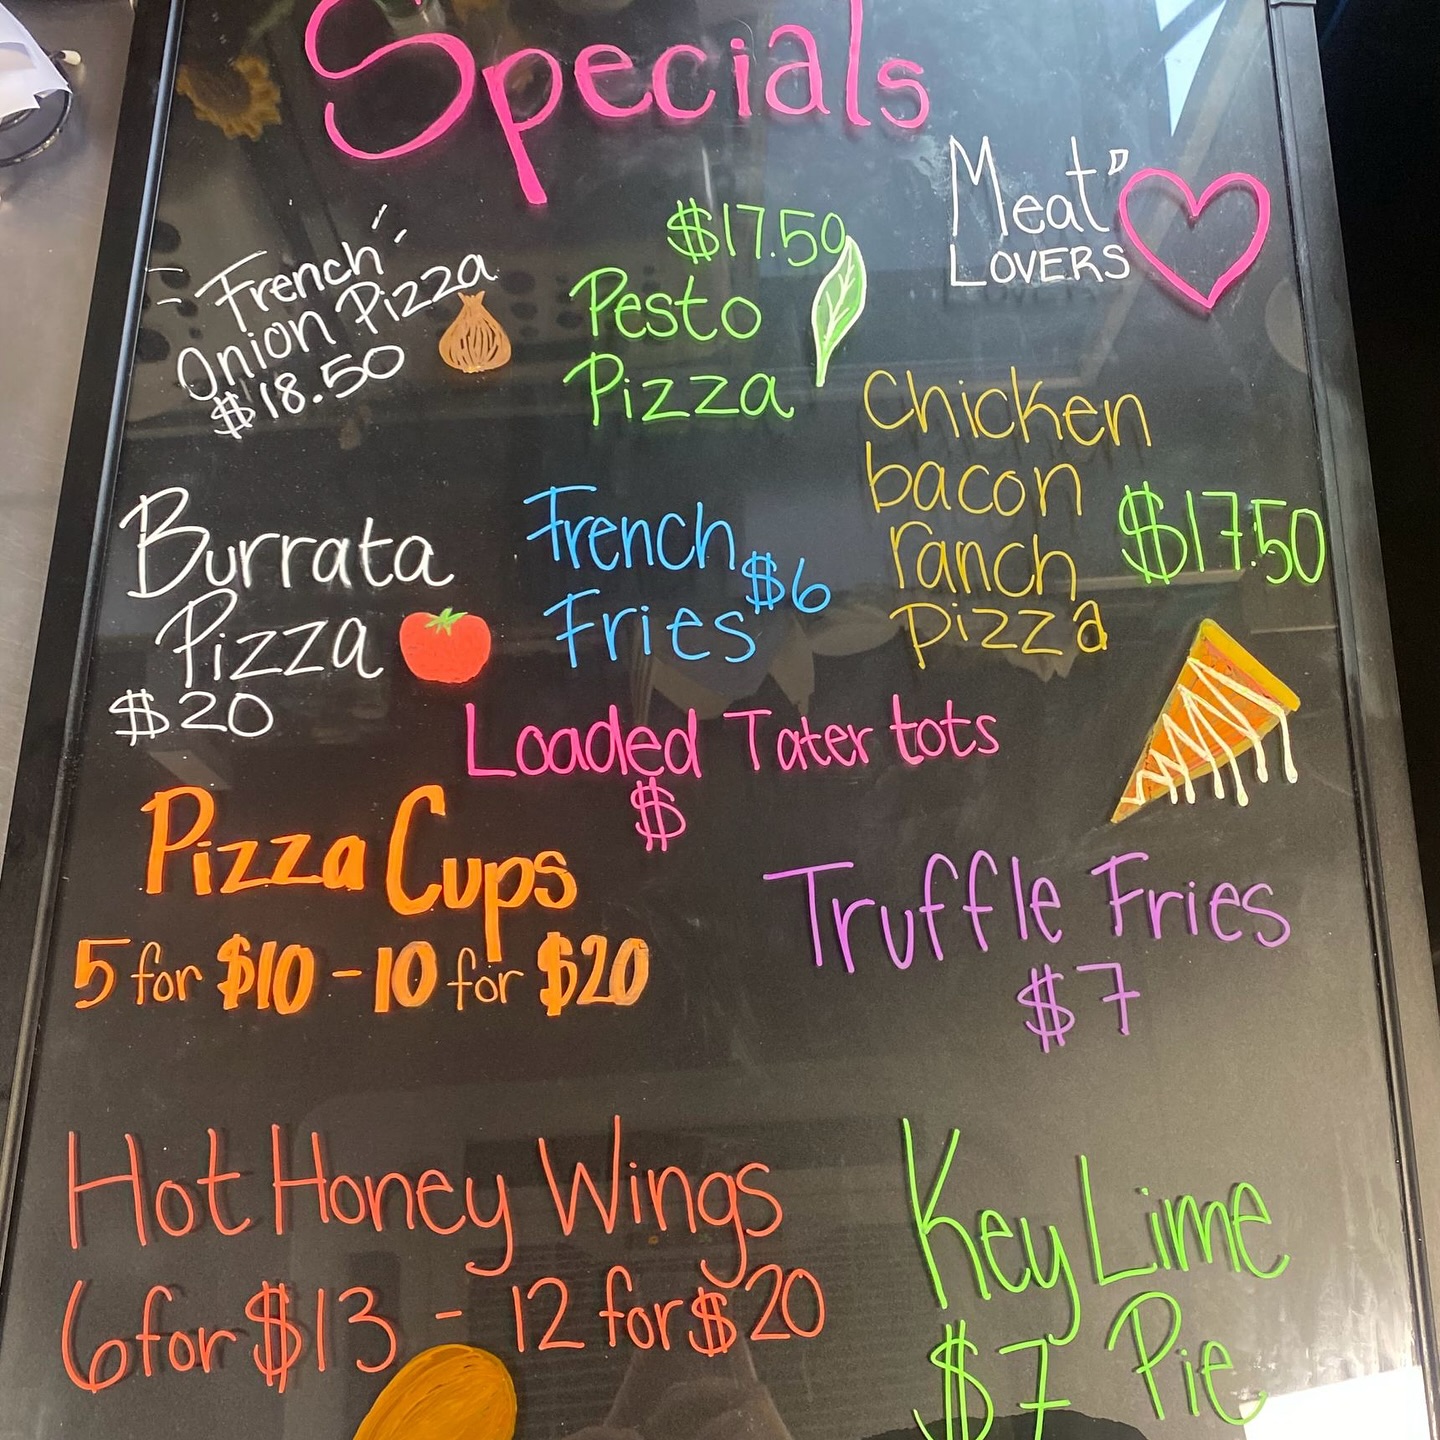 Specials
French
Onion Pizza
$18.50
$17.50
Pesto
Pizza
Meat
LOVERS
Chicken
bacon
ranch
pizza
$17.50
Burrata
Pizza
$20
French
Fries
$6
Loaded Tater tots
$
Pizza Cups
5 for $10 - 10 for $20
Truffle Fries
$7
Hot Honey Wings
6 for $13 - 12 for $20
Key Lime
Pie
$7